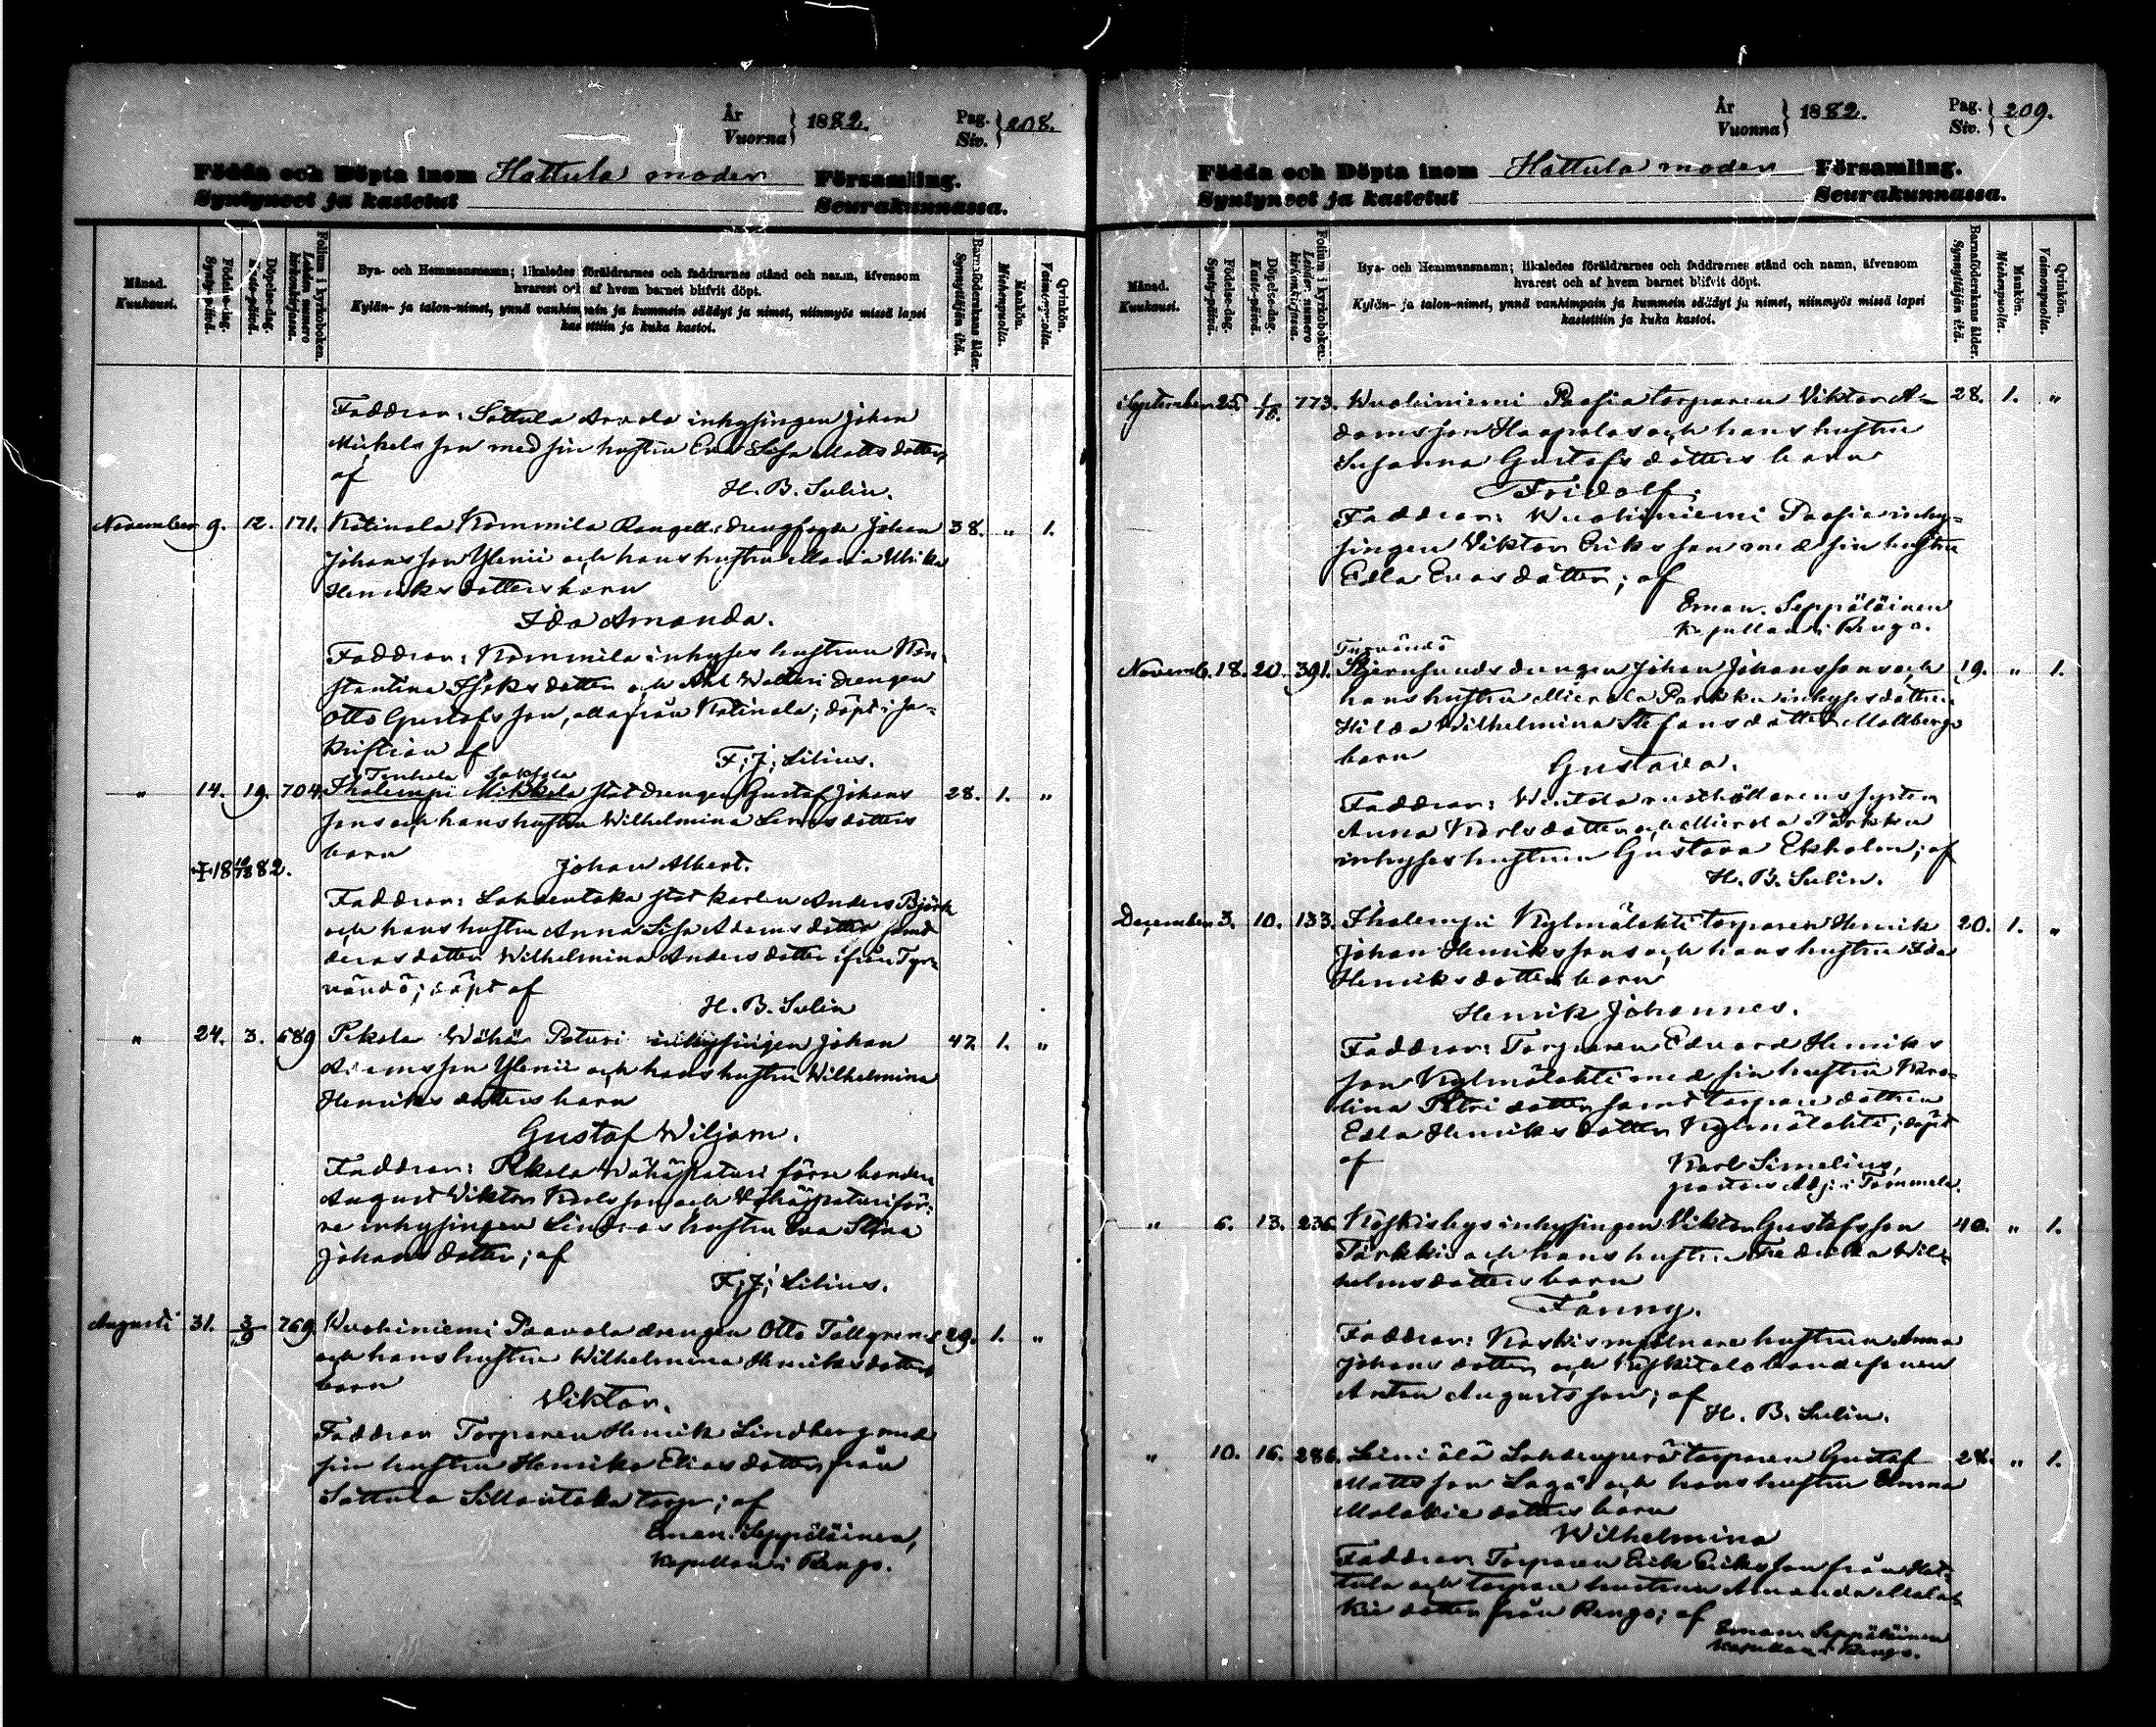 År
Vuonna } 1882.
Pag.
Siv. } 208.
Födda och Döpta inom Hattula moder Församling.
Syntyneet ja kastetut Seurakunnassa.
Månad.
Kuukausi.
Födelse-dag.
Synty-päivä.
Döpelse-dag.
Kaste-päivä.
Folium i kyrkoboken.
Lehden numero kirkonkirjassa.
Bya- och Hemmansnamn; likaledes föräldrarnes och faddrarnes stånd och namn, äfvensom
hvarest och af hvem barnet blifvit döpt.
Kylän- ja talon-nimet, ynnä vanhimpain ja kummein säädyt ja nimet, niinmyös missä lapsi
kastettiin ja kuka kastoi.
Barnföderskans ålder.
Synnyttäjän ikä.
Mankön.
Miehenpuolia.
Qvinkön.
Vaimonpuolia.
Faddrar: Sattula Arvola inhysingen Johan
Michelsson med sin hustru Eva Lisa Mattsdotter,
af
H. B. Sulin.
November 9. 12. 171. Katinala Kommila Rangells drengfogde Johan 38. " 1.
Johansson Ylenii och hans hustru Maria Ulrika
Henriksdotters barn
Ida Amanda.
Faddrar: Kommila inhyses hustrun Kon-
stantina
dotter och Ahl Walturi drengen
Otto Gustafsson, alla från Katinala; döpt i sa-
kristian af
F. J. Lilius.
Tenhola
" 14. 19. 704. Ihalempi Mikkola statdrengen Gustaf Johans 28. 1. "
sons och hans hustru Wilhelmina Lenasdotters
barn
Johan Albert.
✠ 18 12/18 82.
Faddrar: Lahdentaka statkarlen Anders Björk
och hans hustru Anna Lisa Adamsdotter samt
deras dotter Wilhelmina Andersdotter ifrån Tyr-
vändö; döpt af
H. B. Sulin
" 24. 3. 689 Pekola Wähä Paturi inhysingen Johan 47. 1. "
Adamsson Ylenii och hans hustru Wilhelmina
Henriksdotters barn
Gustaf Wiljam.
Faddrar: Pekola Wähäpaturi förre bonden
August Viktor Karlsson och Wähäpaturi för-
re inhysingen Lindroos hustru Eva Stina
Johansdotter; af
F. J. Lilius.
Augusti 31. 3/9 769. Wuohiniemi Paavola drengen Otto Tallgrens 29. 1. "
och hans hustru Wilhelmina Henriksdotters
barn
Viktor.
Faddrar Torparen Henrik Lindberg med
sin hustru Henrika Eliasdotter från
Sattula Sillantaka torp; af
Eman. Seppäläinen,
Kapellan i Rengo.
År
Vuonna } 1882.
Pag.
Siv. } 209.
Födda och Döpta inom Hattula moder Församling.
Syntyneet ja kastetut Seurakunnassa.
Månad.
Kuukausi.
Födelse-dag.
Synty-päivä.
Döpelse-dag.
Kaste-päivä.
Folium i kyrkoboken.
Lehden numero kirkonkirjassa.
Bya- och Hemmansnamn; likaledes föräldrarnes och faddrarnes stånd och namn, äfvensom
hvarest och af hvem barnet blifvit döpt.
Kylän- ja talon-nimet, ynnä vanhimpain ja kummein säädyt ja nimet, niinmyös missä lapsi
kastettiin ja kuka kastoi.
Barnföderskans ålder.
Synnyttäjän ikä.
Mankön.
Miehenpuolia.
Qvinkön.
Vaimonpuolia.
September 25. 1/10. 773. Wuohiniemi Pasia torparen Viktor A- 28. 1. "
damsson Haapalas och hans hustru
Susanna Gustafsdotters barn
Fridolf.
Faddrar: Wuohiniemi Pasia inhy-
singen Viktor Eriksson med sin hustru
Edla Evasdotter; af
Eman. Seppäläinen
Kapellan i Rengo.
Tyrvändö
Novemb. 18. 20. 391. Stjernsunds drengen Johan Johanssons och 19. " 1.
hans hustru Mierola Parkku inhysesdottren
Hilda Wilhelmina Stefansdotter Mallbergs
barn
Gustava.
Faddrar: Wintala rusthållarens syster
Anna Karlsdotter och Mierola Parkku
inhyses hustrun Gustava Ekholm; af
H. B. Sulin.
December 3. 10. 133. Ihalempi Kylmälahti torparen Henrik 20. 1. "
Johan Henrikssons och hans hustru Ida
Henriksdotters barn
Henrik Johannes.
Faddrar: Torparen Edvard Henriks
son Kylmälahti med sin hustru Karo-
lina Petri dotter samt torpare dottren
Edla Henriksdotter Kylmälahti; döpt
af
Karl Simelius,
pastors Adj. i Tammela.
" 6. 13. 236. Koskisbys inhysingen Viktor Gustafsson 40. " 1.
Tarkkis och hans hustru Fredrika Wil-
helmsdotters barn
Fanny.
Faddrar: Koskis mjölnare hustrun Anna
Johansdotter och Koskitalo bondesonen
Anton Augustsson; af
H. B. Sulin.
" 10. 16. 286. Leiniälä Lahdenperä torparen Gustaf 28. " 1.
Mattsson Lagás och hans hustru Emma
Malakiedotters barn
Wilhelmina
Faddrar Torparen Erik Eriksson från Hat-
tula och torpare hustrun Amanda Mala-
kiedotter från Rengo; af
Eman. Seppäläinen
Kapellan i Rengo.